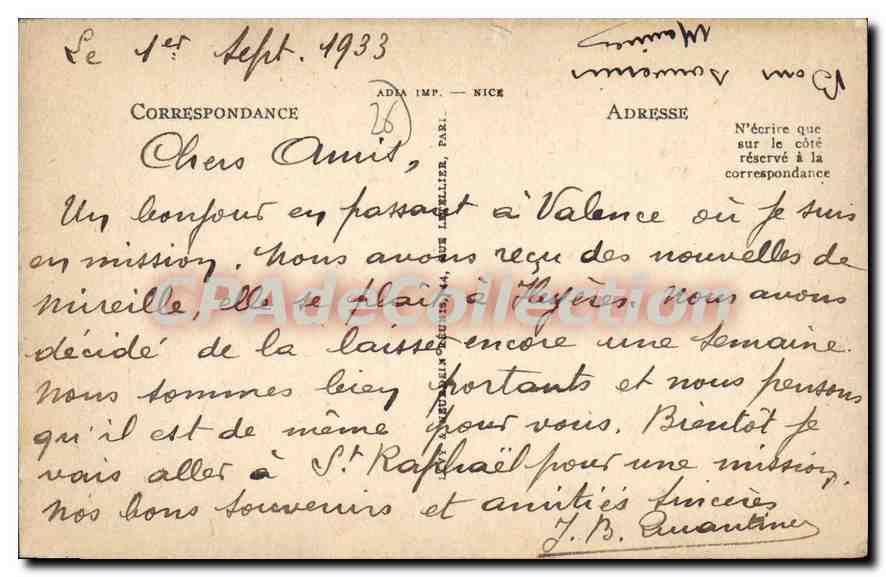 Le 1er Sept. 1933
Bons souvenirs
ADIA IMP. — NICE
CORRESPONDANCE
ADRESSE
26
N'écrire que
sur le côté
réservé à la
correspondance
LEVY & NEURDEIN RÉUNIS, 44, RUE LETELLIER, PARI
Chers Amis,
Un bonjour en passant à Valence où je suis
en mission. Nous avons reçu des nouvelles de
Mireille, elle se plaît à Hyères. Nous avons
décidé de la laisser encore une semaine.
Nous sommes bien portants et nous pensons
qu'il est de même pour vous. Bientôt je
vais aller à St Raphaël pour une mission.
Nos bons souvenirs et amitiés sincères
J. B.
CPAdeCollection